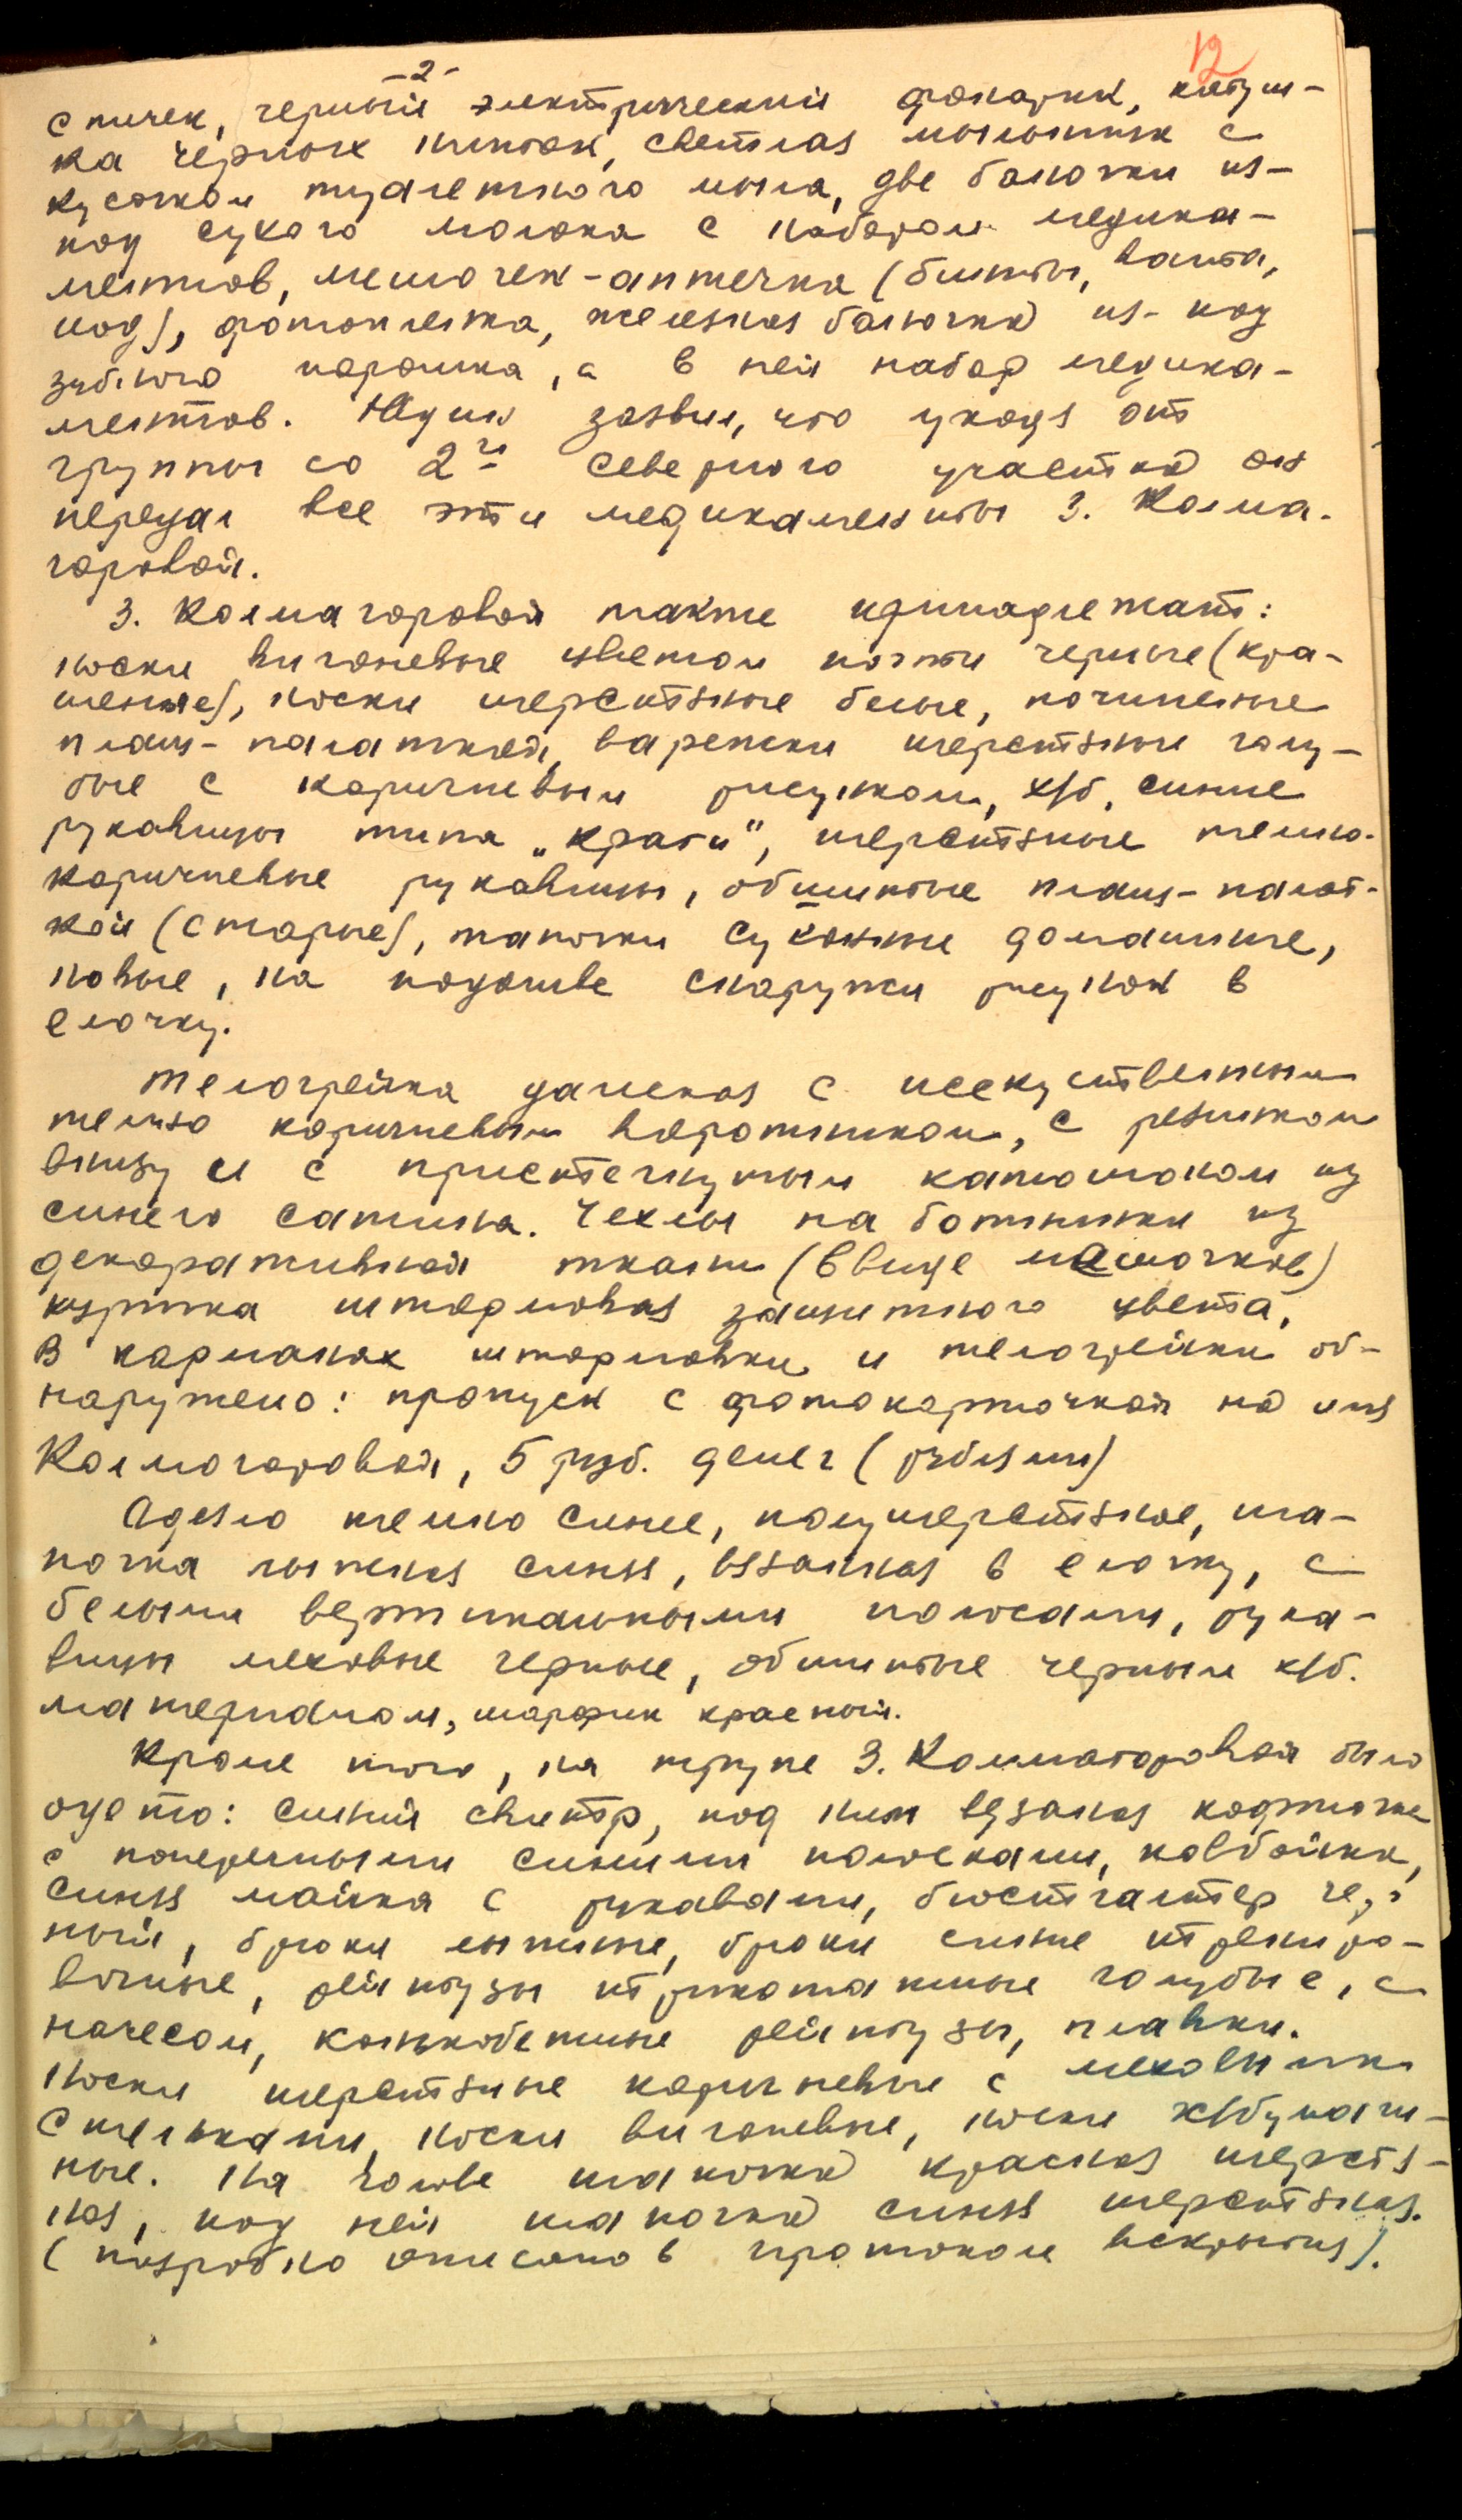 -2-
12
спичек, черный электрический фонарик, катуш-
ка черных ниток, светлая мыльница с
кусочком туалетного мыла, две баночки из-
под сухого молока с набором медика-
ментов, мешочек-аптечка (бинты, вата,
иод), фотопленка, железная баночка из-под
зубного порошка, а в ней набор медика-
ментов. Юдин заявил, что уходя от
группы со 2го Северного участка он
передал все эти медикаменты З. Колма-
горовой.
З. Колмагоровой также принадлежат:
носки вигоневые цветом почти черные (кра-
шеные), носки шерстяные белые, починеные
плащ-палаткой, варежки шерстяные голу-
бые с коричневым рисунком, х/б, синие
рукавицы типа „краги", шерстяные темно-
коричневые рукавицы, обшитые плащ-палат-
кой (старые), тапочки суконные домашние,
новые, на подошве снаружи рисунок в
елочку.
Телогрейка дамская с искуственным
темно коричневым воротником, с резинкой
внизу и с пристегнутым капюшоном из
синего сатина. Чехлы на ботинки из
декоративной ткани (ввиде мешочков)
куртка штормовая защитного цвета,
В карманах штормовки и телогрейки об-
наружено: пропуск с фотокарточкой на имя
Колмогоровой, 5 руб. денег (рублями)
Одеяло темно синее, полушерстяное, ша-
почка лыжная синяя, вязанная в елочку, с
белыми вертикальными полосами, рука-
вицы меховые черные, обшитые черным х/б.
материалом, шарфик красный.
Кроме того, на трупе З. Колмагоровой было
одето: синий свитр, под ним вязаная кофточка
с поперечными синими полосками, ковбойка,
синяя майка с рукавами, бюстгалтер чер-
ный, брюки лыжные, брюки синие трениро-
вочные, рейтузы трикотажные голубые, с
начесом, конькобежные рейтузы, плавки.
Носки шерстяные коричневые с меховыми
стельками, носки вигоневые, носки х/бумаж-
ные. На голове шапочка красная шерстя-
ная, под ней шапочка синяя шерстяная.
(подробно описано в протоколе вскрытия).